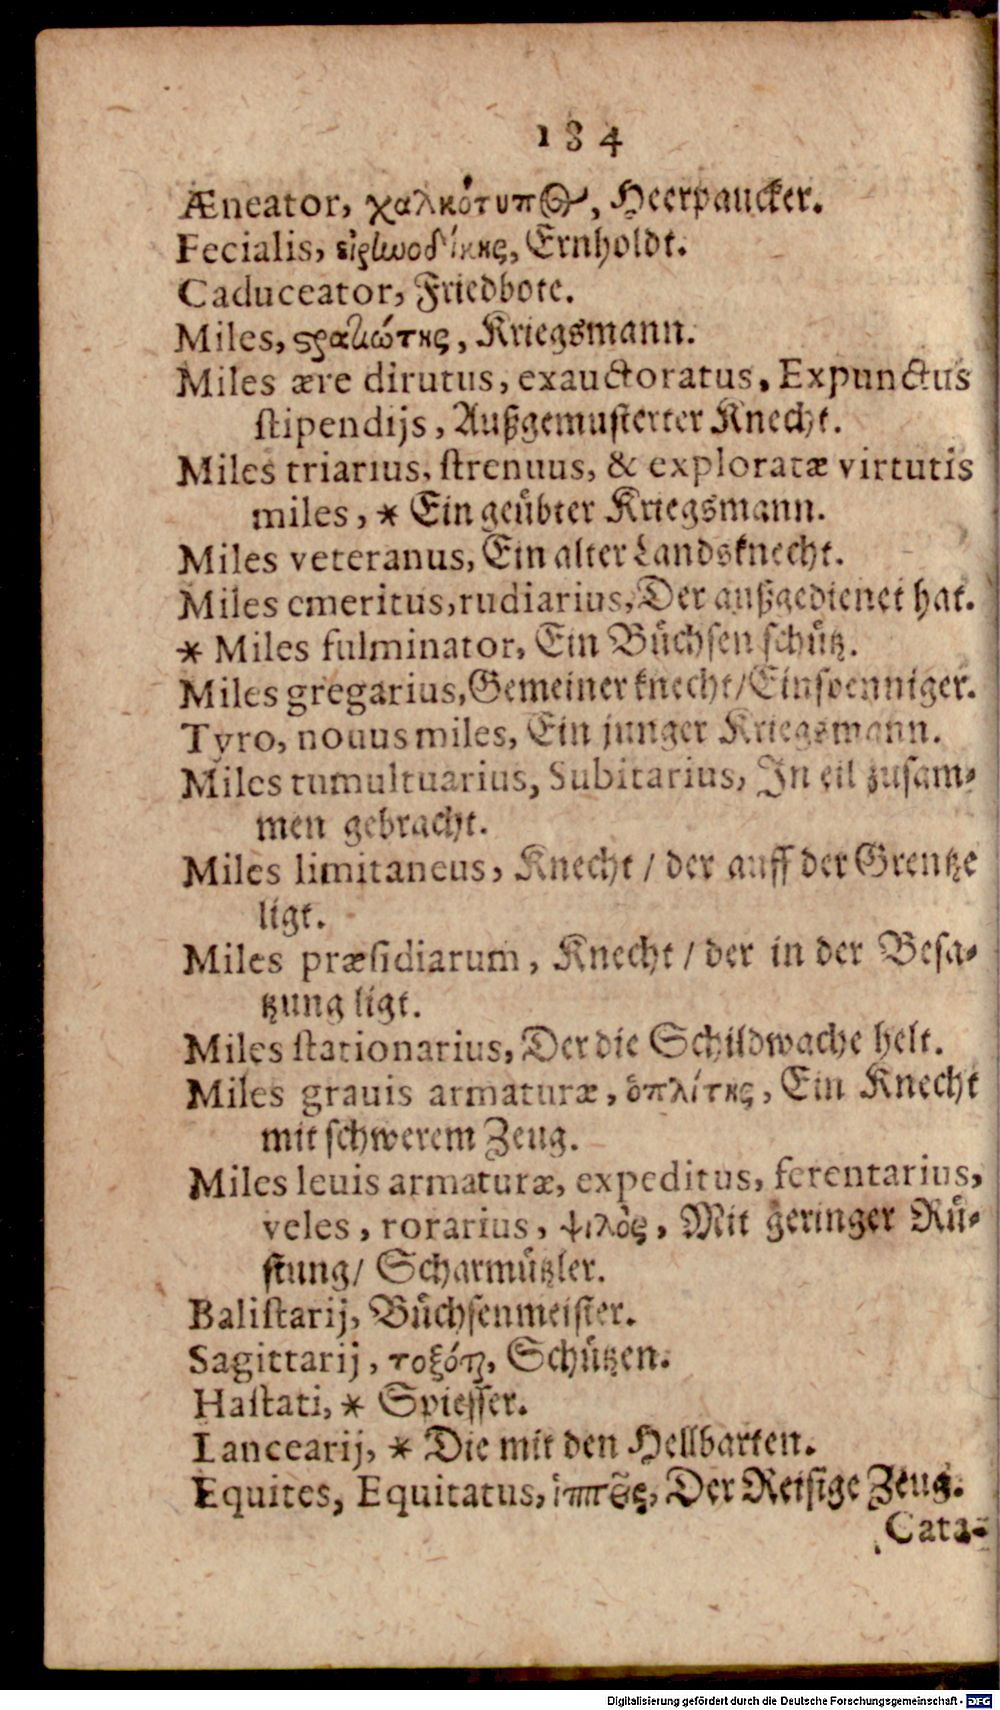 184
Æneator, χαλκότυπος, Heerpaucker.
Fecialis, εἰρηνοδίκης, Ernholdt.
Caduceator, Friedbote.
Miles, ςρατιώτης, Kriegsmann.
Miles ære dirutus, exauctoratus, Expunctus
ſtipendijs, Außgemuſterter Knecht.
Miles triarius, ſtrenuus, & exploratæ virtutis
miles, * Ein geuͤbter Kriegsmann.
Miles veteranus, Ein alter Landsknecht.
Miles emeritus, rudiarius, Der außgedienet hat.
* Miles fulminator, Ein Buͤchſen ſchuͤtz.
Miles gregarius, Gemeiner knecht/ Einſpenniger.
Tyro, nouus miles, Ein junger Kriegsmann.
Miles tumultuarius, Subitarius, In eil zuſam⸗
men gebracht.
Miles limitaneus, Knecht / der auff der Grentze
ligt.
Miles præſidiarum, Knecht / der in der Beſa⸗
tzung ligt.
Miles ſtationarius, Der die Schildwache helt.
Miles grauis armaturæ, ὁπλίτης, Ein Knecht
mit ſchwerem Zeug.
Miles leuis armaturæ, expeditus, ferentarius,
veles, rorarius, ψιλὸς, Mit geringer Ruͤ⸗
ſtung/ Scharmuͤtzler.
Baliſtarij, Buͤchſenmeiſter.
Sagittarij, τοξόται, Schuͤtzen.
Haſtati, * Spieſſer.
Lancearij, * Die mit den Hellbarten.
Equites, Equitatus, ἱππεῖς, Der Reiſige Zeug.
Cata-
Digitalisierung gefördert durch die Deutsche Forschungsgemeinschaft - DFG